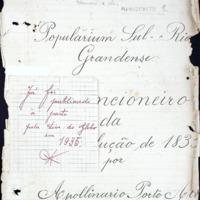 MANUSCRITO 2
Popularium Sul-Rio
Grandense
Já foi
publicado
à parte
pela Liv. do Globo
em
1935.
ncioneiro
da
lução de 183
por
Apollinario Porto Al